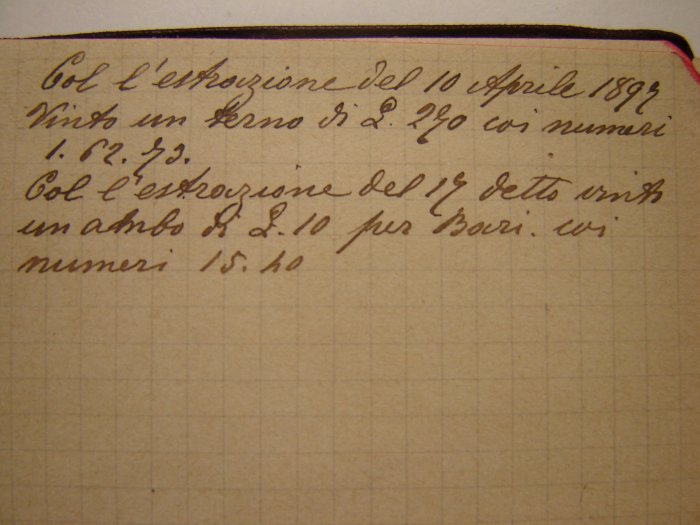 Col l'estrazione del 10 Aprile 1897
Vinto un terno di L. 270 coi numeri
1. 62. 73.
Col l'estrazione del 17 detto vinto
un ambo di L. 10 per Bari. coi
numeri 15. 40